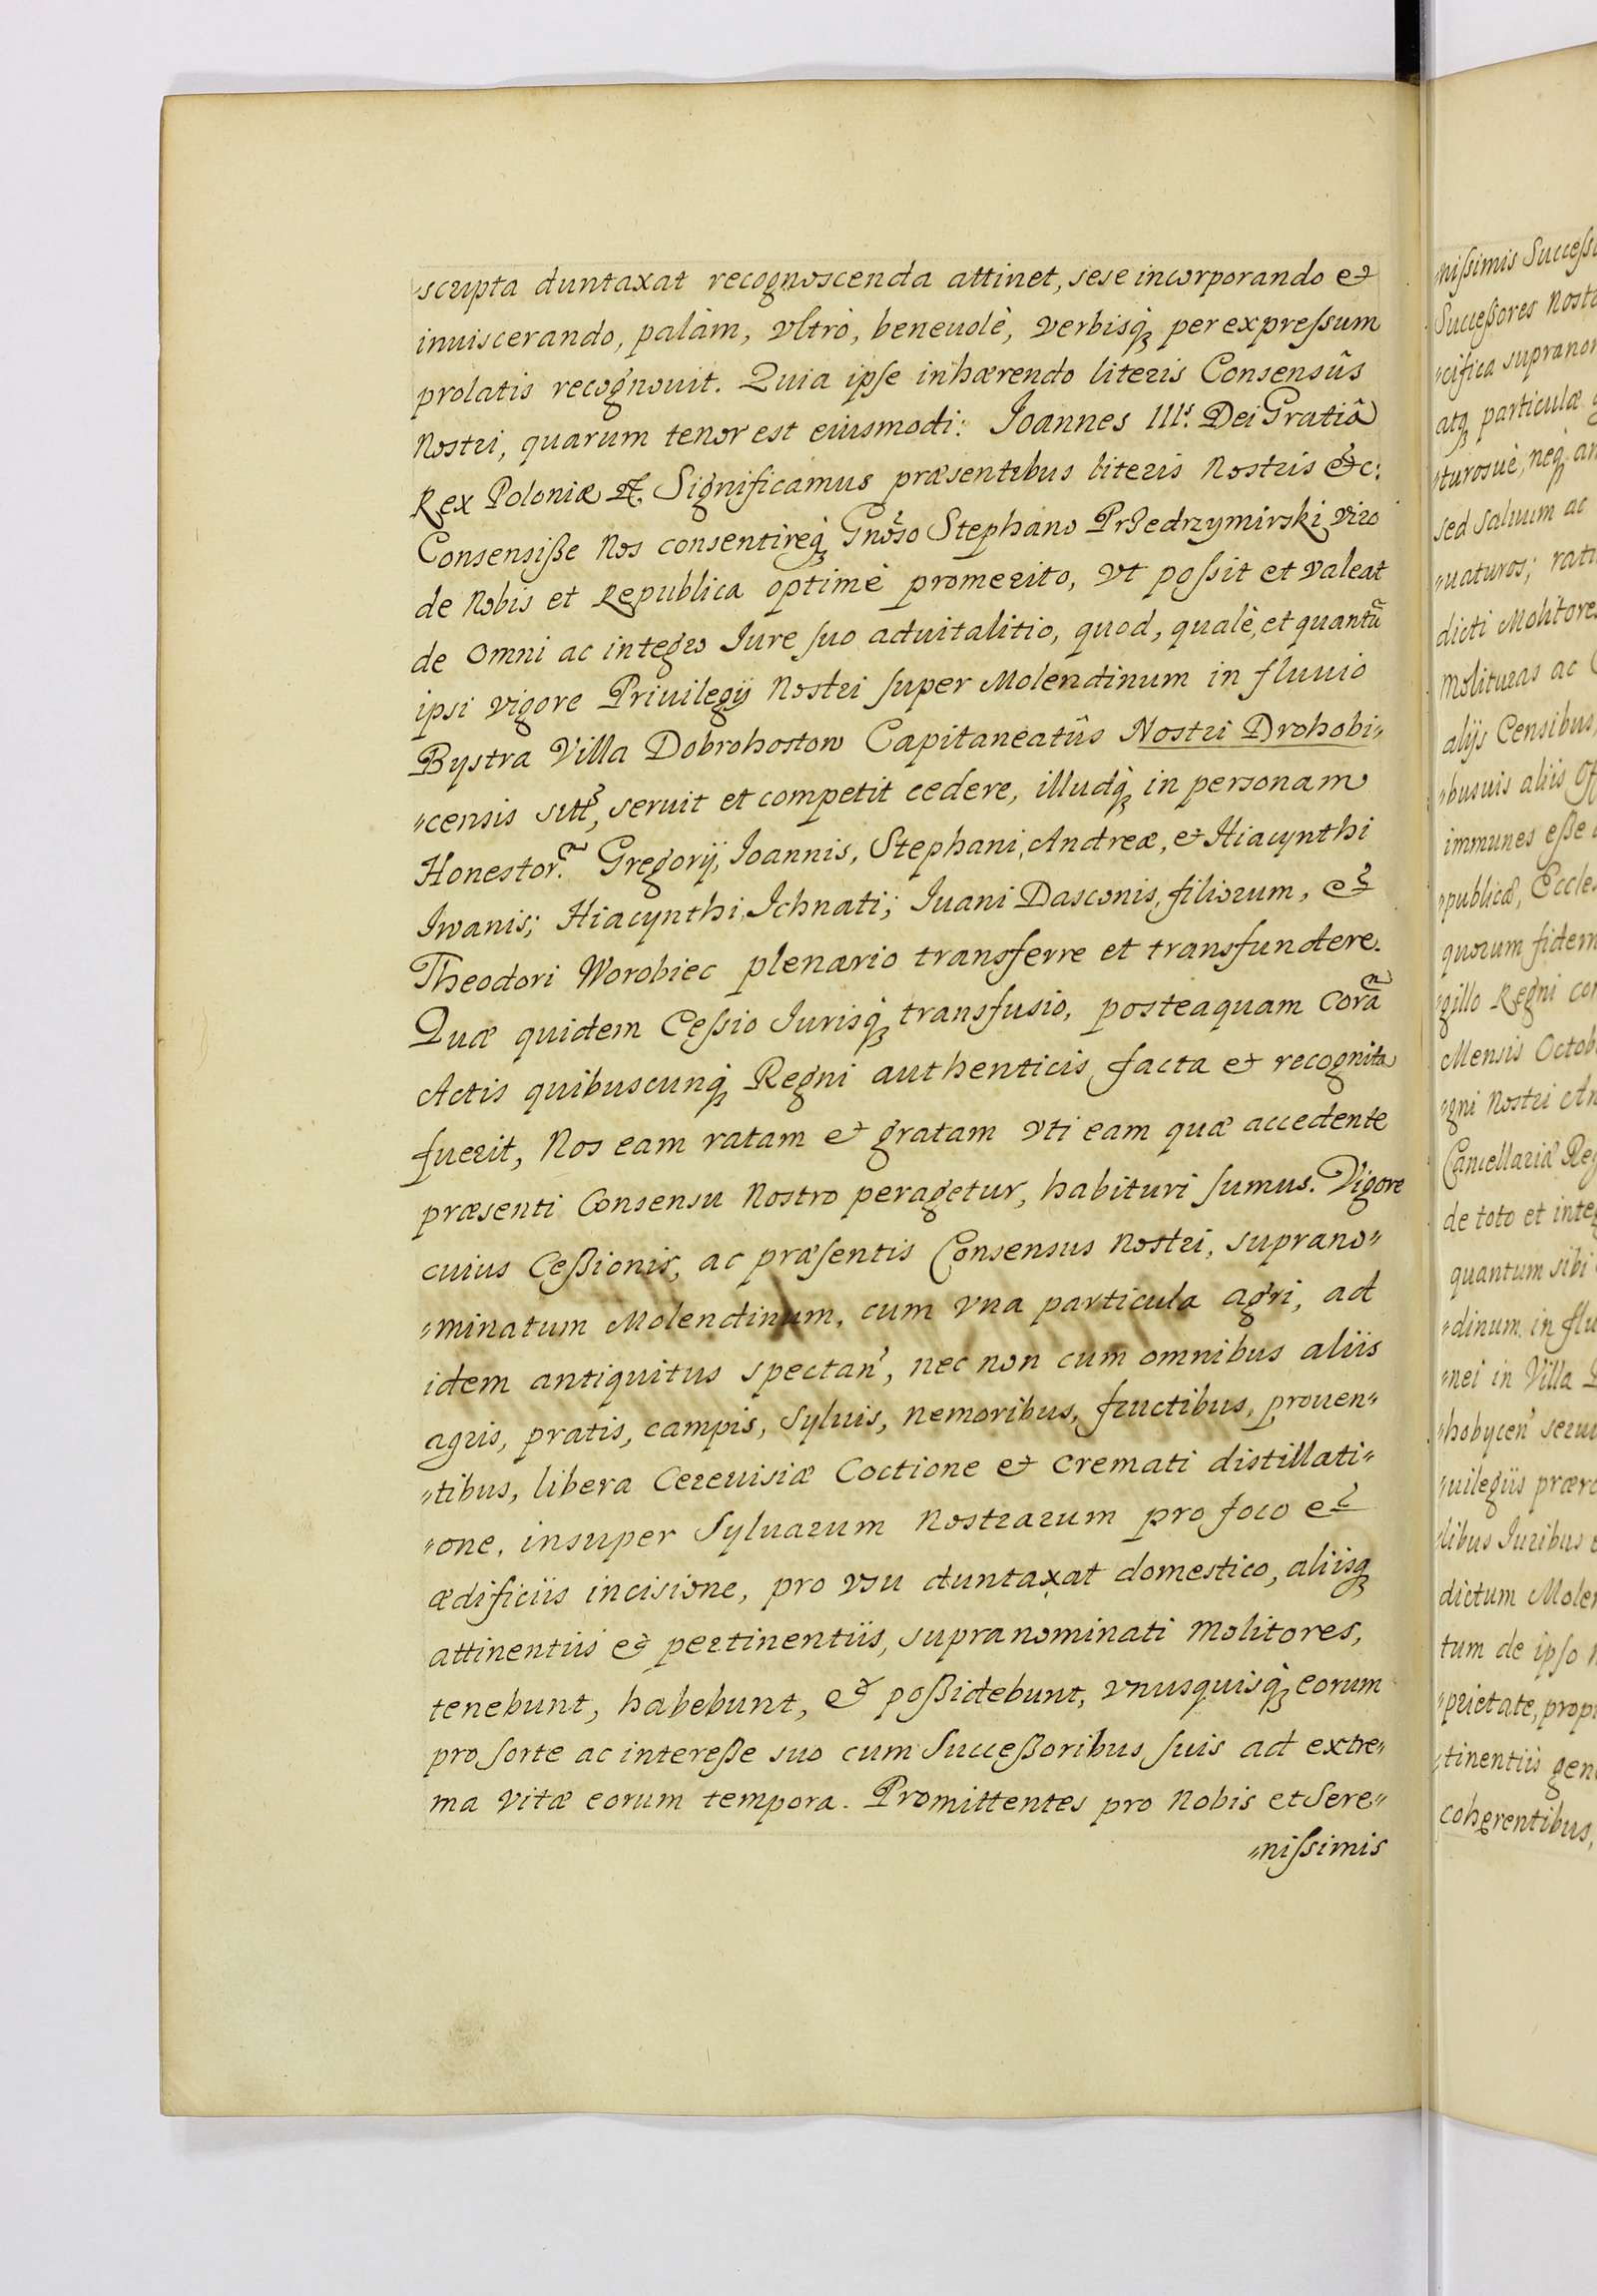 „scripta duntaxat recognoscenda attinet, sese incorporando et
inuiscerando, palàm, vltrò, beneuolè, verbisq; per expreſsum
prolatis recognouit. Quia ipſe inhærendo literis Consensûs
Nostri, quarum tenor est eiusmodi: Joannes IIIs. Dei Gratiâ
Rex Poloniæ &. Significamus præsentibus literis Nostris &c:
Consensiße Nos consentireq; Gnoso Stephano Przedrzymirski viro
de Nobis et Republica optimè promerito, vt poſsit et valeat
de omni ac integro Jure ſuo aduitalitio, quod, qualè, et quantũ
ipsi vigore Priuilegij Nostri ſuper Molendinum in fluuio
Bystra Villa Dobrohostow Capitaneatûs Nostri Drohobi„
„censis sitt, seruit et competit cedere, illudq; in personam
Honestor. Gregorij, Joannis, Stephani, Andreæ, et Hiacynthi
Iwanis; Hiacynthi Jchnati; Juani Dasconis, filiorum, et
Theodori Worobiec plenario transferre et transfundere.
Quæ quidem Ceſsio Jurisq; transfusio, posteaquam Corã
Actis quibuscunq; Regni authenticis facta et recognita
fuerit, Nos eam ratam et gratam vti eam quæ accedente
præsenti Consensu Nostro peragetur, habituri ſumus. Vigore
cuius Ceßionis, ac præſentis Consensus Nostri, suprano„
„minatum Molendinum, cum vna particula agri, ad
idem antiquitus spectan, nec non cum omnibus aliis
agris, pratis, campis, Syluis, nemoribus, fructibus, prouen„
„tibus, libera Cereuisiæ Coctione et Cremati distillati„
„one, insuper Syluarum Nostrarum pro foco et
ædificiis incisione, pro vsu duntaxat domestico, aliisq;
attinentiis et pertinentiis, supranominati Molitores,
tenebunt, habebunt, et poßidebunt, vnusquisq; eorum
pro ſorte ac intereße suo cum Succeßoribus ſuis ad extre„
ma vitæ eorum tempora. Promittentes pro Nobis et Sere„
„niſsimis
„niſsimis Succeſs
Succeßores Nost
„cifica suprano
atq; particulæ
„turosuè, neq; an
sed saluum ac
„uaturos; rat
dicti Molitores
Molituras ac
alijs Censibus,
„busuis aliis Of
immunes eße
„publicæ, Eccle
quorum fidem
„gillo Regni co
Mensis Octob
„gni Nostri An
Cancellariæ Reg
de toto et inte
quantum sibi
„dinum in flu
„nei in Villa
„hobycen seru
„uilegiis prær
„libus Juribus
dictum Molen
tum de ipſo
„prietate, prop
„tinentiis gen
cohęrentibus,